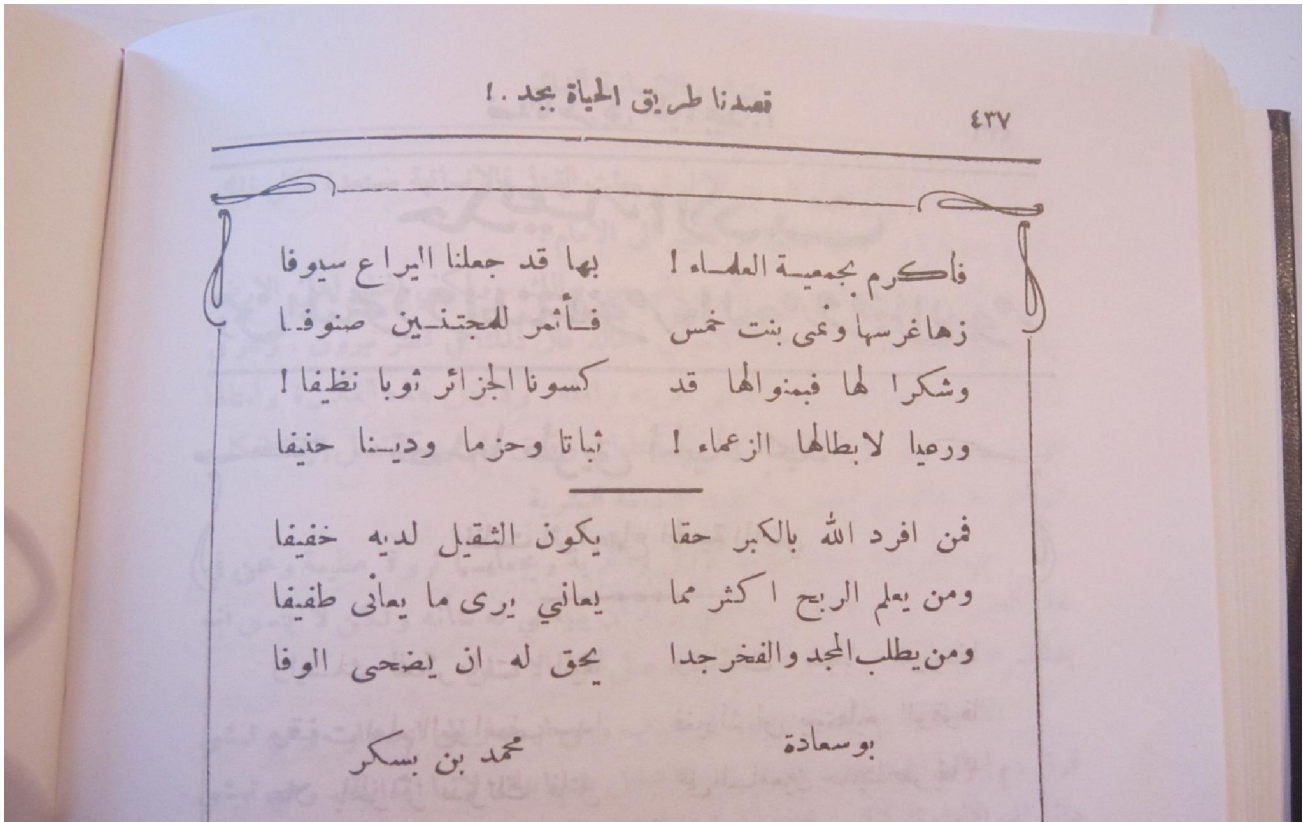 قصدنا طريق الحياة بجد .!
٤٣٧
فاكرم بجمعية العلماء ! بها قد جعلنا اليراع سيوفا
زها غرسها ونمى بنت خمس فأثمر للمجتنين صنوفا
وشكرا لها فبمنوالها قد كسونا الجزائر ثوبا نظيفا !
ورعيا لابطالها الزعماء ! ثباتا وحزما ودينا حنيفا
فمن افرد الله بالكبر حقا يكون الثقيل لديه خفيفا
ومن يعلم الربح اكثر مما يعاني يرى ما يعانى طفيفا
ومن يطلب المجد والفخر جدا يحق له ان يضحى الوفا
بوسعادة محمد بن بسكر